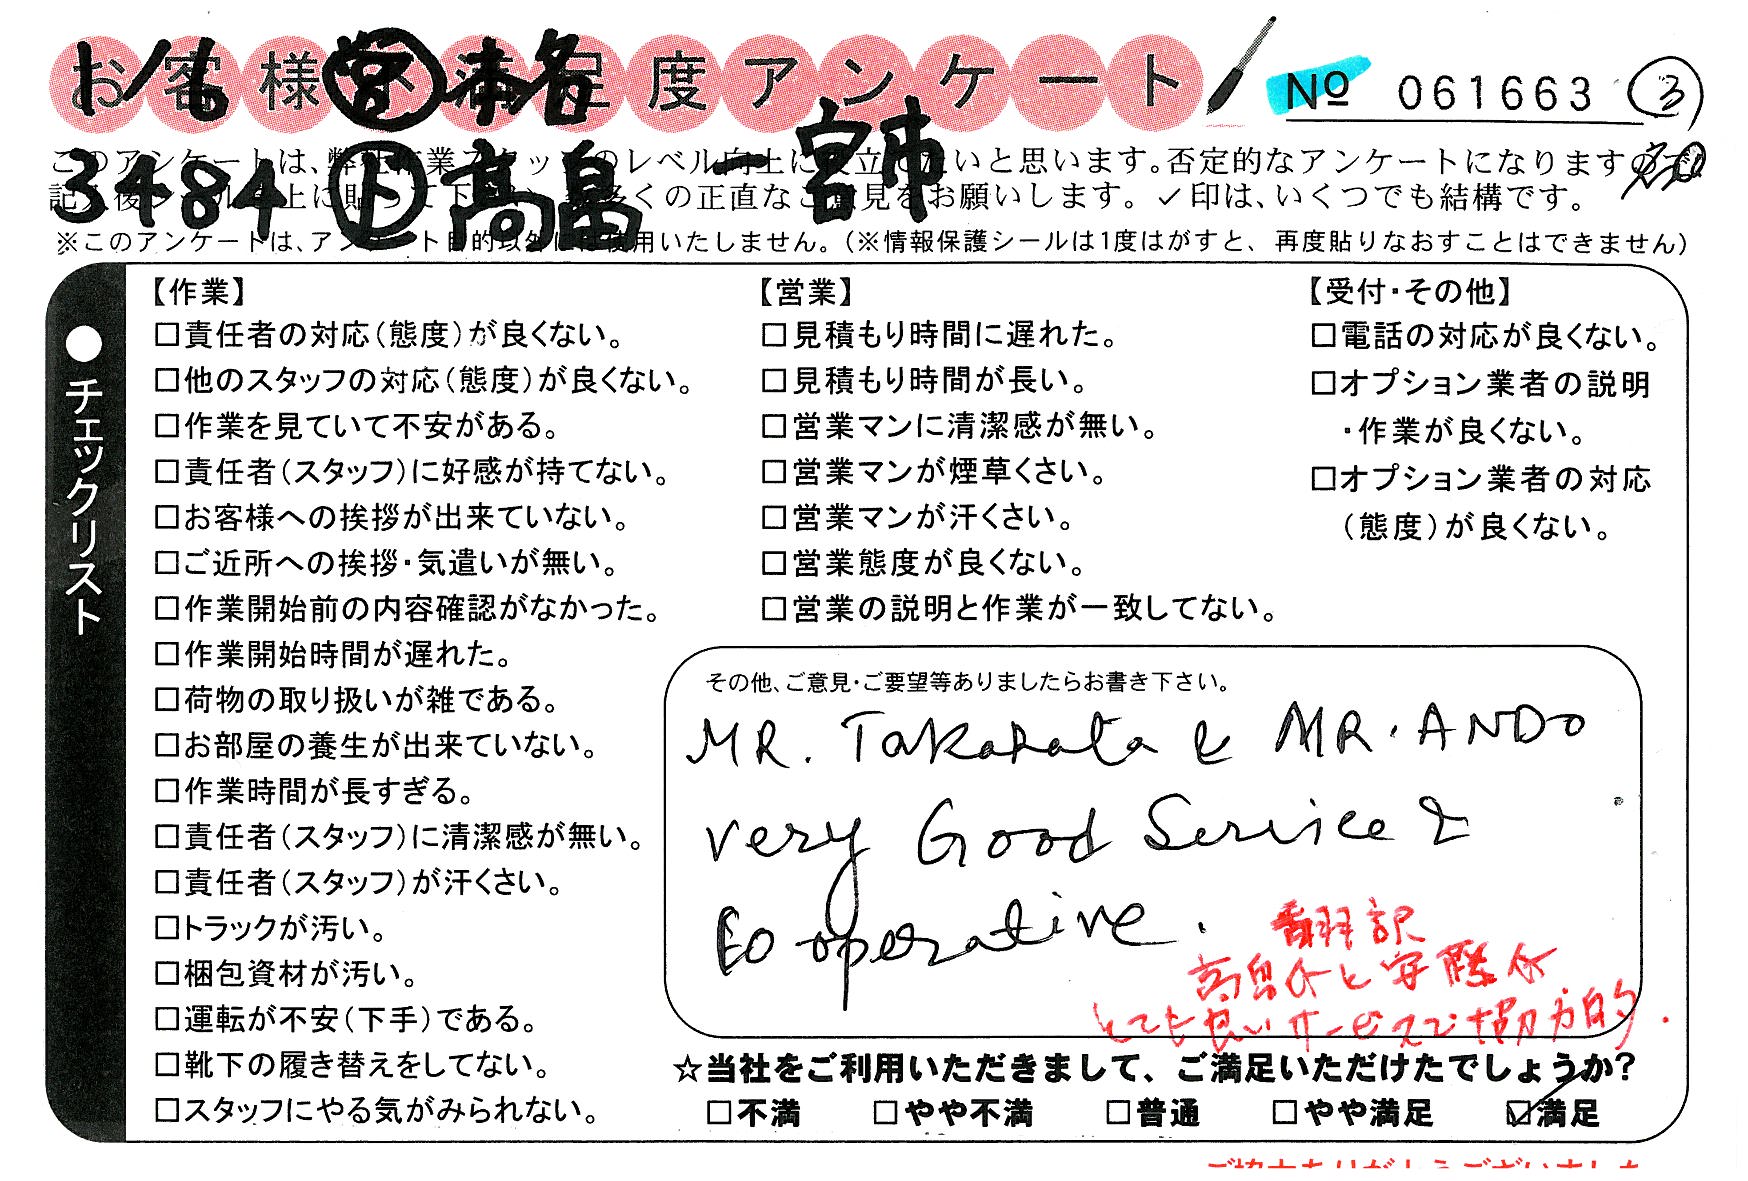 お客様不満足度アンケート
No 061663 ③
1/6 ㊒本名
3484 ㊦高畠 - 宮市
このアンケートは、弊社作業スタッフのレベル向上に役立てたいと思います。否定的なアンケートになりますので
記入後シールを上に貼って下さい。数多くの正直なご意見をお願いします。✓印は、いくつでも結構です。
※このアンケートは、アンケート目的以外には使用いたしません。(※情報保護シールは1度はがすと、再度貼りなおすことはできません)
●チェックリスト
【作業】
□責任者の対応(態度)が良くない。
□他のスタッフの対応(態度)が良くない。
□作業を見ていて不安がある。
□責任者(スタッフ)に好感が持てない。
□お客様への挨拶が出来ていない。
□ご近所への挨拶・気遣いが無い。
□作業開始前の内容確認がなかった。
□作業開始時間が遅れた。
□荷物の取り扱いが雑である。
□お部屋の養生が出来ていない。
□作業時間が長すぎる。
□責任者(スタッフ)に清潔感が無い。
□責任者(スタッフ)が汗くさい。
□トラックが汚い。
□梱包資材が汚い。
□運転が不安(下手)である。
□靴下の履き替えをしてない。
□スタッフにやる気がみられない。
【営業】
□見積もり時間に遅れた。
□見積もり時間が長い。
□営業マンに清潔感が無い。
□営業マンが煙草くさい。
□営業マンが汗くさい。
□営業態度が良くない。
□営業の説明と作業が一致してない。
【受付・その他】
□電話の対応が良くない。
□オプション業者の説明
・作業が良くない。
□オプション業者の対応
(態度)が良くない。
その他、ご意見・ご要望等ありましたらお書き下さい。
MR. Takahata & MR. ANDO
very Good Service &
Co operative.
翻訳
高畠さんと安藤さん
とても良いサービスで協力的.
☆当社をご利用いただきまして、ご満足いただけたでしょうか?
□不満 □やや不満 □普通 □やや満足 ☑満足
ご協力ありがとうございました